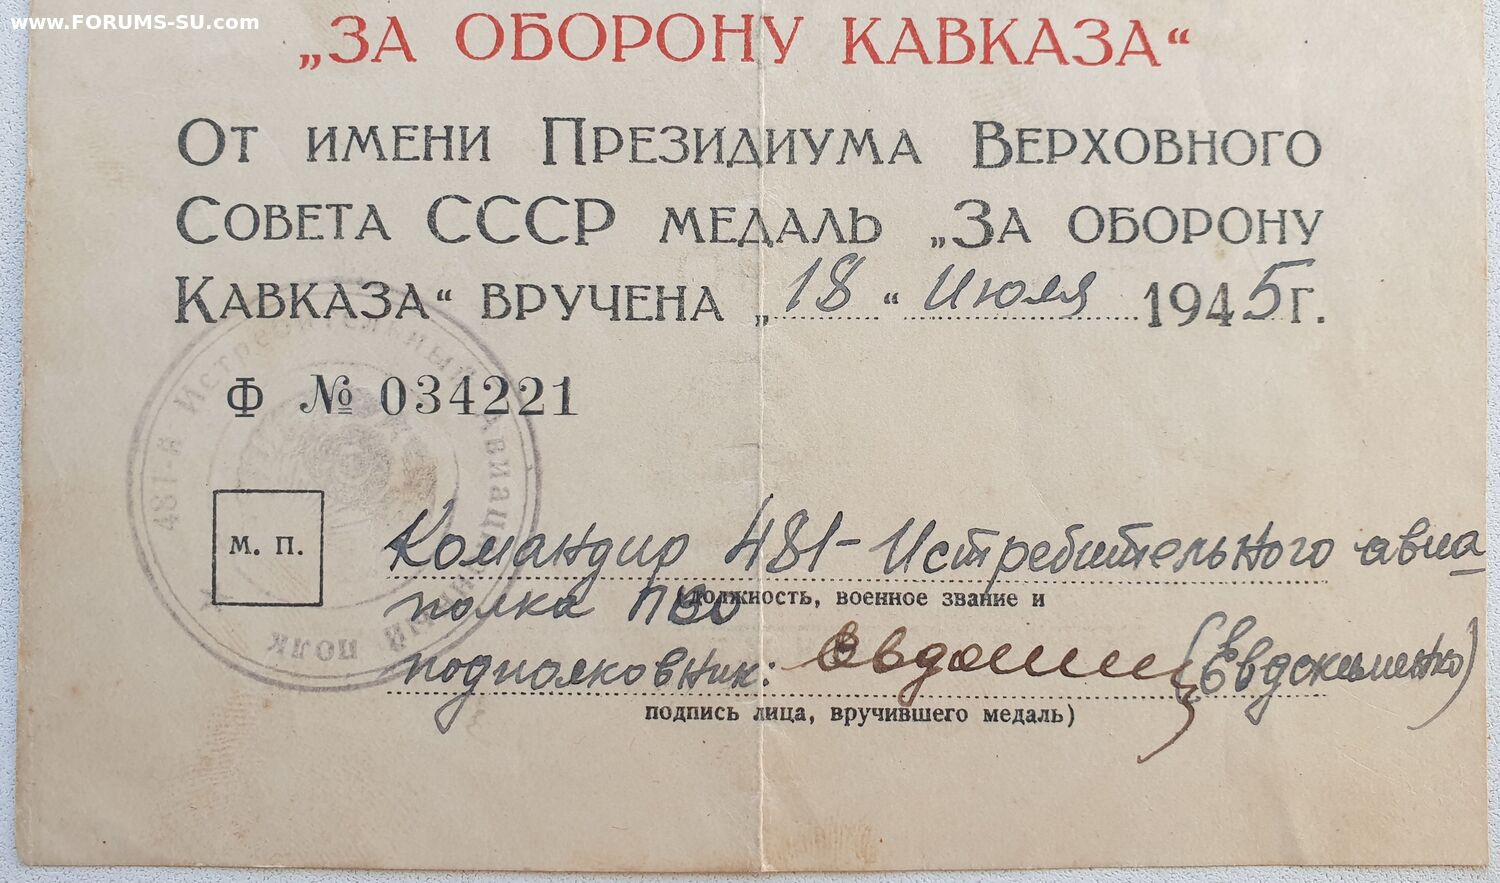 www.FORUMS-SU.com
„ЗА ОБОРОНУ КАВКАЗА“
ОТ ИМЕНИ ПРЕЗИДИУМА ВЕРХОВНОГО
СОВЕТА СССР МЕДАЛЬ „ЗА ОБОРОНУ
КАВКАЗА“ ВРУЧЕНА „18“ Июля 1945г.
Ф № 034221
481-й Истребительный Авиационный полк
М. П.
Командир 481-Истребительного авиа
полка ПВО
(должность, военное звание и
подполковник: (Евдокименко)
подпись лица, вручившего медаль)